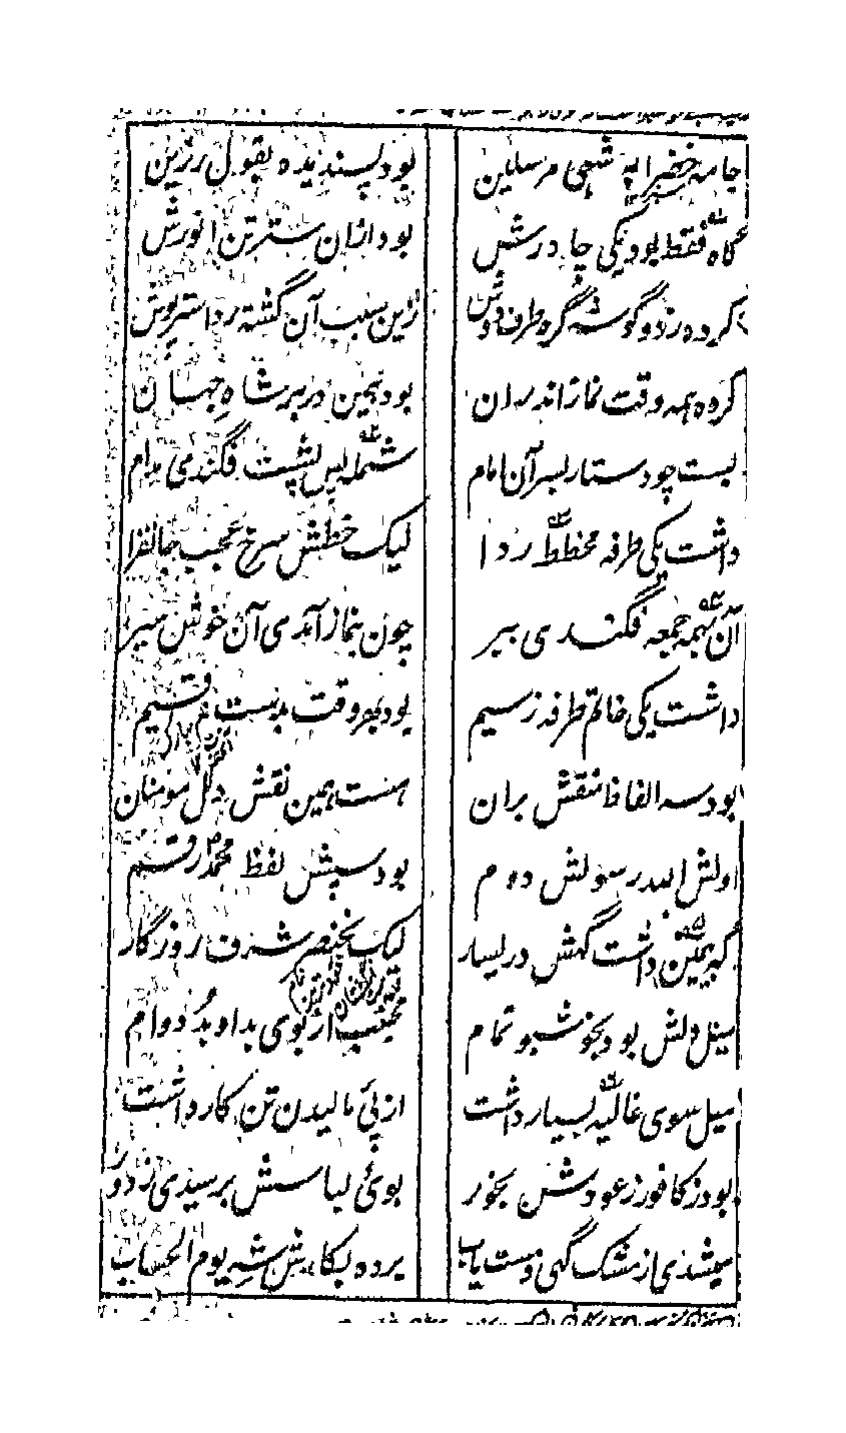 جامه خضرا به شهی مرسلین بود پسندیده بقول رزین
گاه فقط بود یکی چادرش بود ازان ستر تن انورش
کرده زدو گوشه گره طرف دوش زین سبب آن گشته ردا ستر پوش
کرده همه وقت نماز اندران بود همین در بر شاه جهان
بست چو دستار بسر آن امام شمله پس پشت فگندی مدام
داشت یکی طرفه مخطط ردا لیک خطش سرخ عجب جانفزا
آن همه جمعه فگندی ببر چون بنماز آمدی آن خوش سیر
داشت یکی خاتم طرفه ز سیم بود بهر وقت بدست قسیم
بود سه الفاظ منقش بران هست همین نقش دل مومنان
اولش الله رسولش دوم بود سپش لفظ محمد رقم
گه بیمین داشت گهش در یسار لیک بخنصر شرف روزگار
میل دلش بود بخوشبو تمام مجتنب از بوی بد او بد دوام
میل سوی غالیه بسیار داشت از پی مالیدن تن کار داشت
بود ز کافور ز عودش بخور بوئ لباسش برسیدی ز دور
میشدی از مشک گهی دست یاب برده بکارش شه یوم الحساب